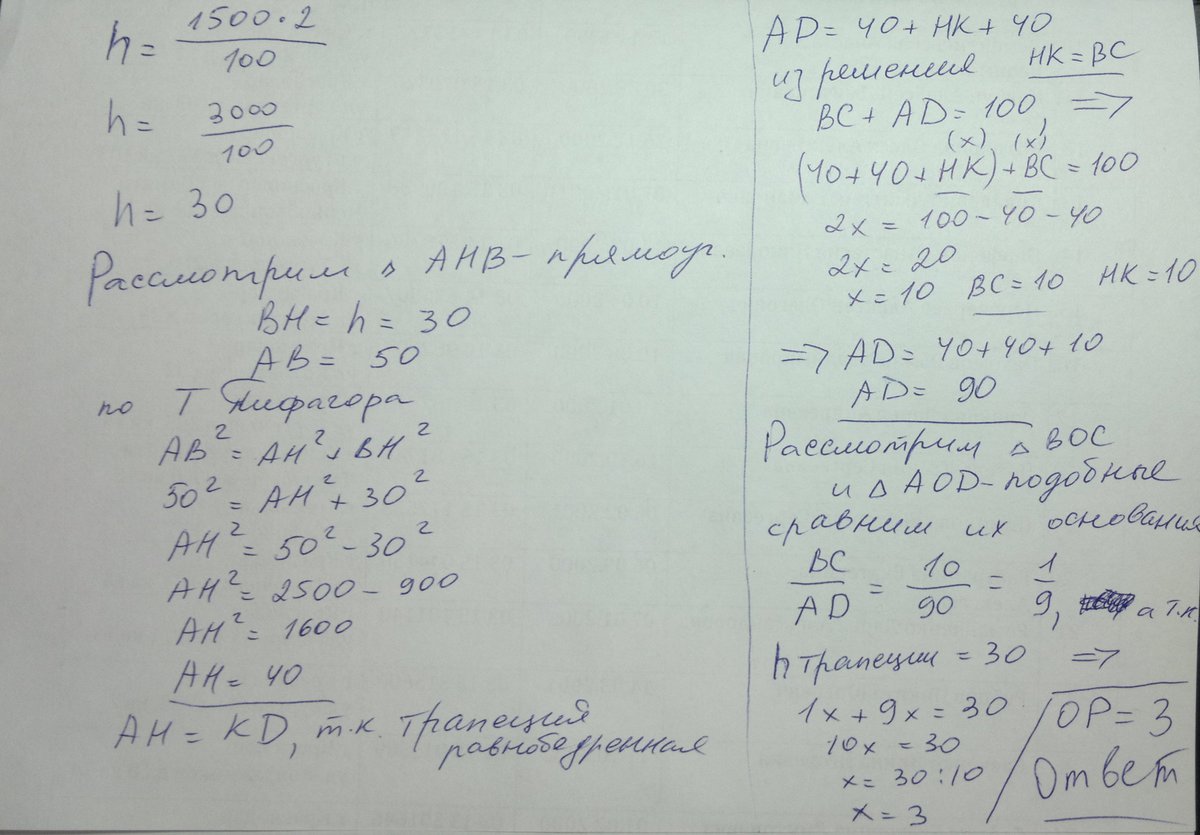 h = 1500·2 / 100
h = 3000 / 100
h = 30
Рассмотрим △ AHB – прямоуг.
BH = h = 30
AB = 50
по Т Пифагора
AB² = AH² + BH²
50² = AH² + 30²
AH² = 50² – 30²
AH² = 2500 – 900
AH² = 1600
AH = 40
AH = KD, т.к. трапеция
равнобедренная
AD = 40 + HK + 40
из решения HK = BC
BC + AD = 100, =>
(x) (x)
(40 + 40 + HK) + BC = 100
2x = 100 – 40 – 40
2x = 20
x = 10 BC = 10 HK = 10
=> AD = 40 + 40 + 10
AD = 90
Рассмотрим △ BOC
и △ AOD – подобные
сравним их основания
BC / AD = 10 / 90 = 1 / 9, а т.к.
h трапеции = 30 =>
1x + 9x = 30
10x = 30
x = 30 : 10
x = 3
OP = 3
Ответ